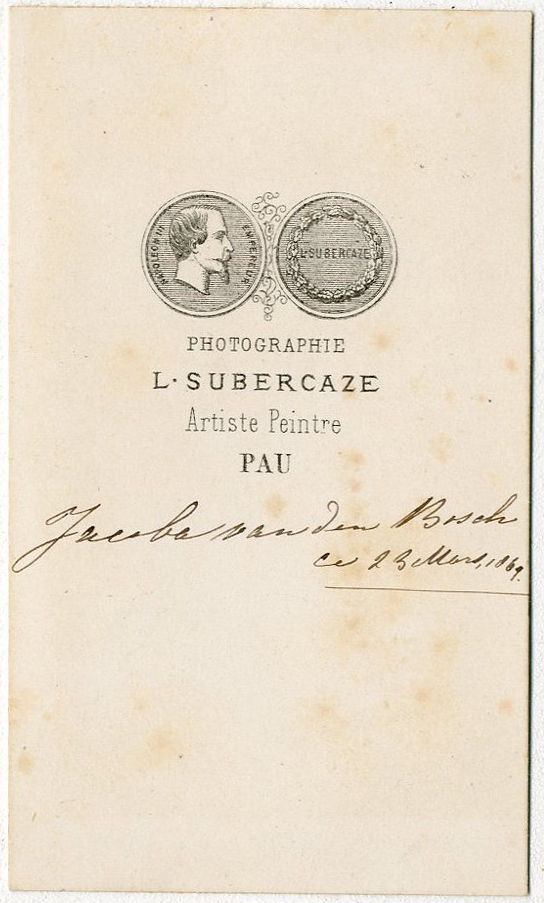 NAPOLEON III EMPEREUR
L. SUBERCAZE
PHOTOGRAPHIE
L. SUBERCAZE
Artiste Peintre
PAU
Jacoba van den Bosch
ce 23 Mars, 1869.